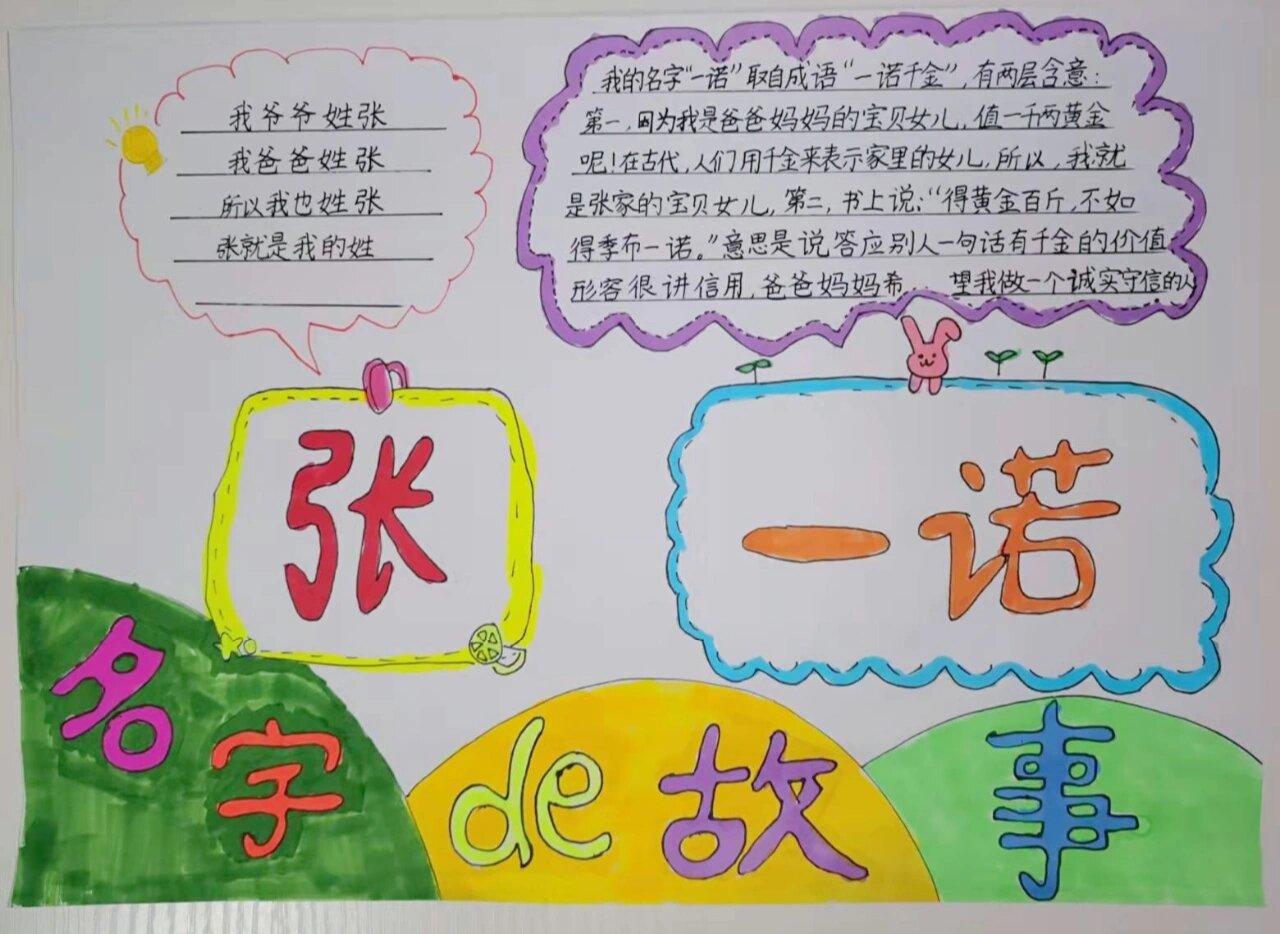 我爷爷姓张
我爸爸姓张
所以我也姓张
张就是我的姓
我的名字“一诺”取自成语“一诺千金”,有两层含意:
第一,因为我是爸爸妈妈的宝贝女儿,值一千两黄金
呢!在古代,人们用千金来表示家里的女儿,所以,我就
是张家的宝贝女儿,第二,书上说:“得黄金百斤,不如
得季布一诺。”意思是说答应别人一句话有千金的价值
形容很讲信用,爸爸妈妈希 望我做一个诚实守信的人
张
一诺
名字de故事